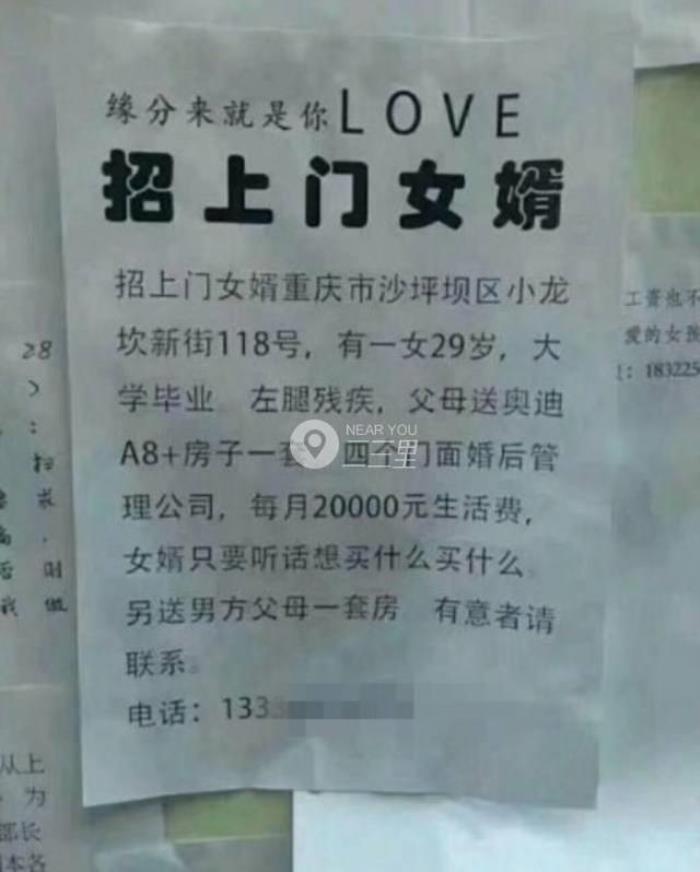 缘分来就是你LOVE
招上门女婿
招上门女婿重庆市沙坪坝区小龙
坎新街118号，有一女29岁，大
学毕业 左腿残疾，父母送奥迪
A8+房子一套 四个门面婚后管
理公司，每月20000元生活费，
女婿只要听话想买什么买什么
另送男方父母一套房 有意者请
联系。
电话：133
NEAR YOU
二三里
工资也不
爱的女孩
：183225
28
扫
求
时
我做
从上
为
部长
本各